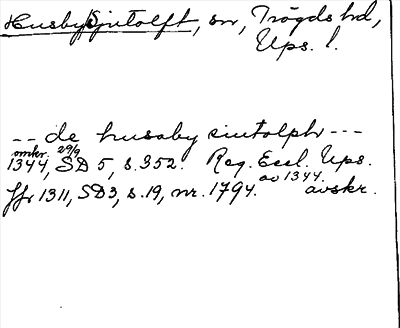 HusbySjutolft, sn, Trögds hd,
Ups. l.
-- de husaby siutolph ---
omkr. 29/9
1344, SD 5, s. 352. Reg. Eccl. Ups.
av 1344.
ffr 1311, SD3, s. 19, nr. 1794. avskr.